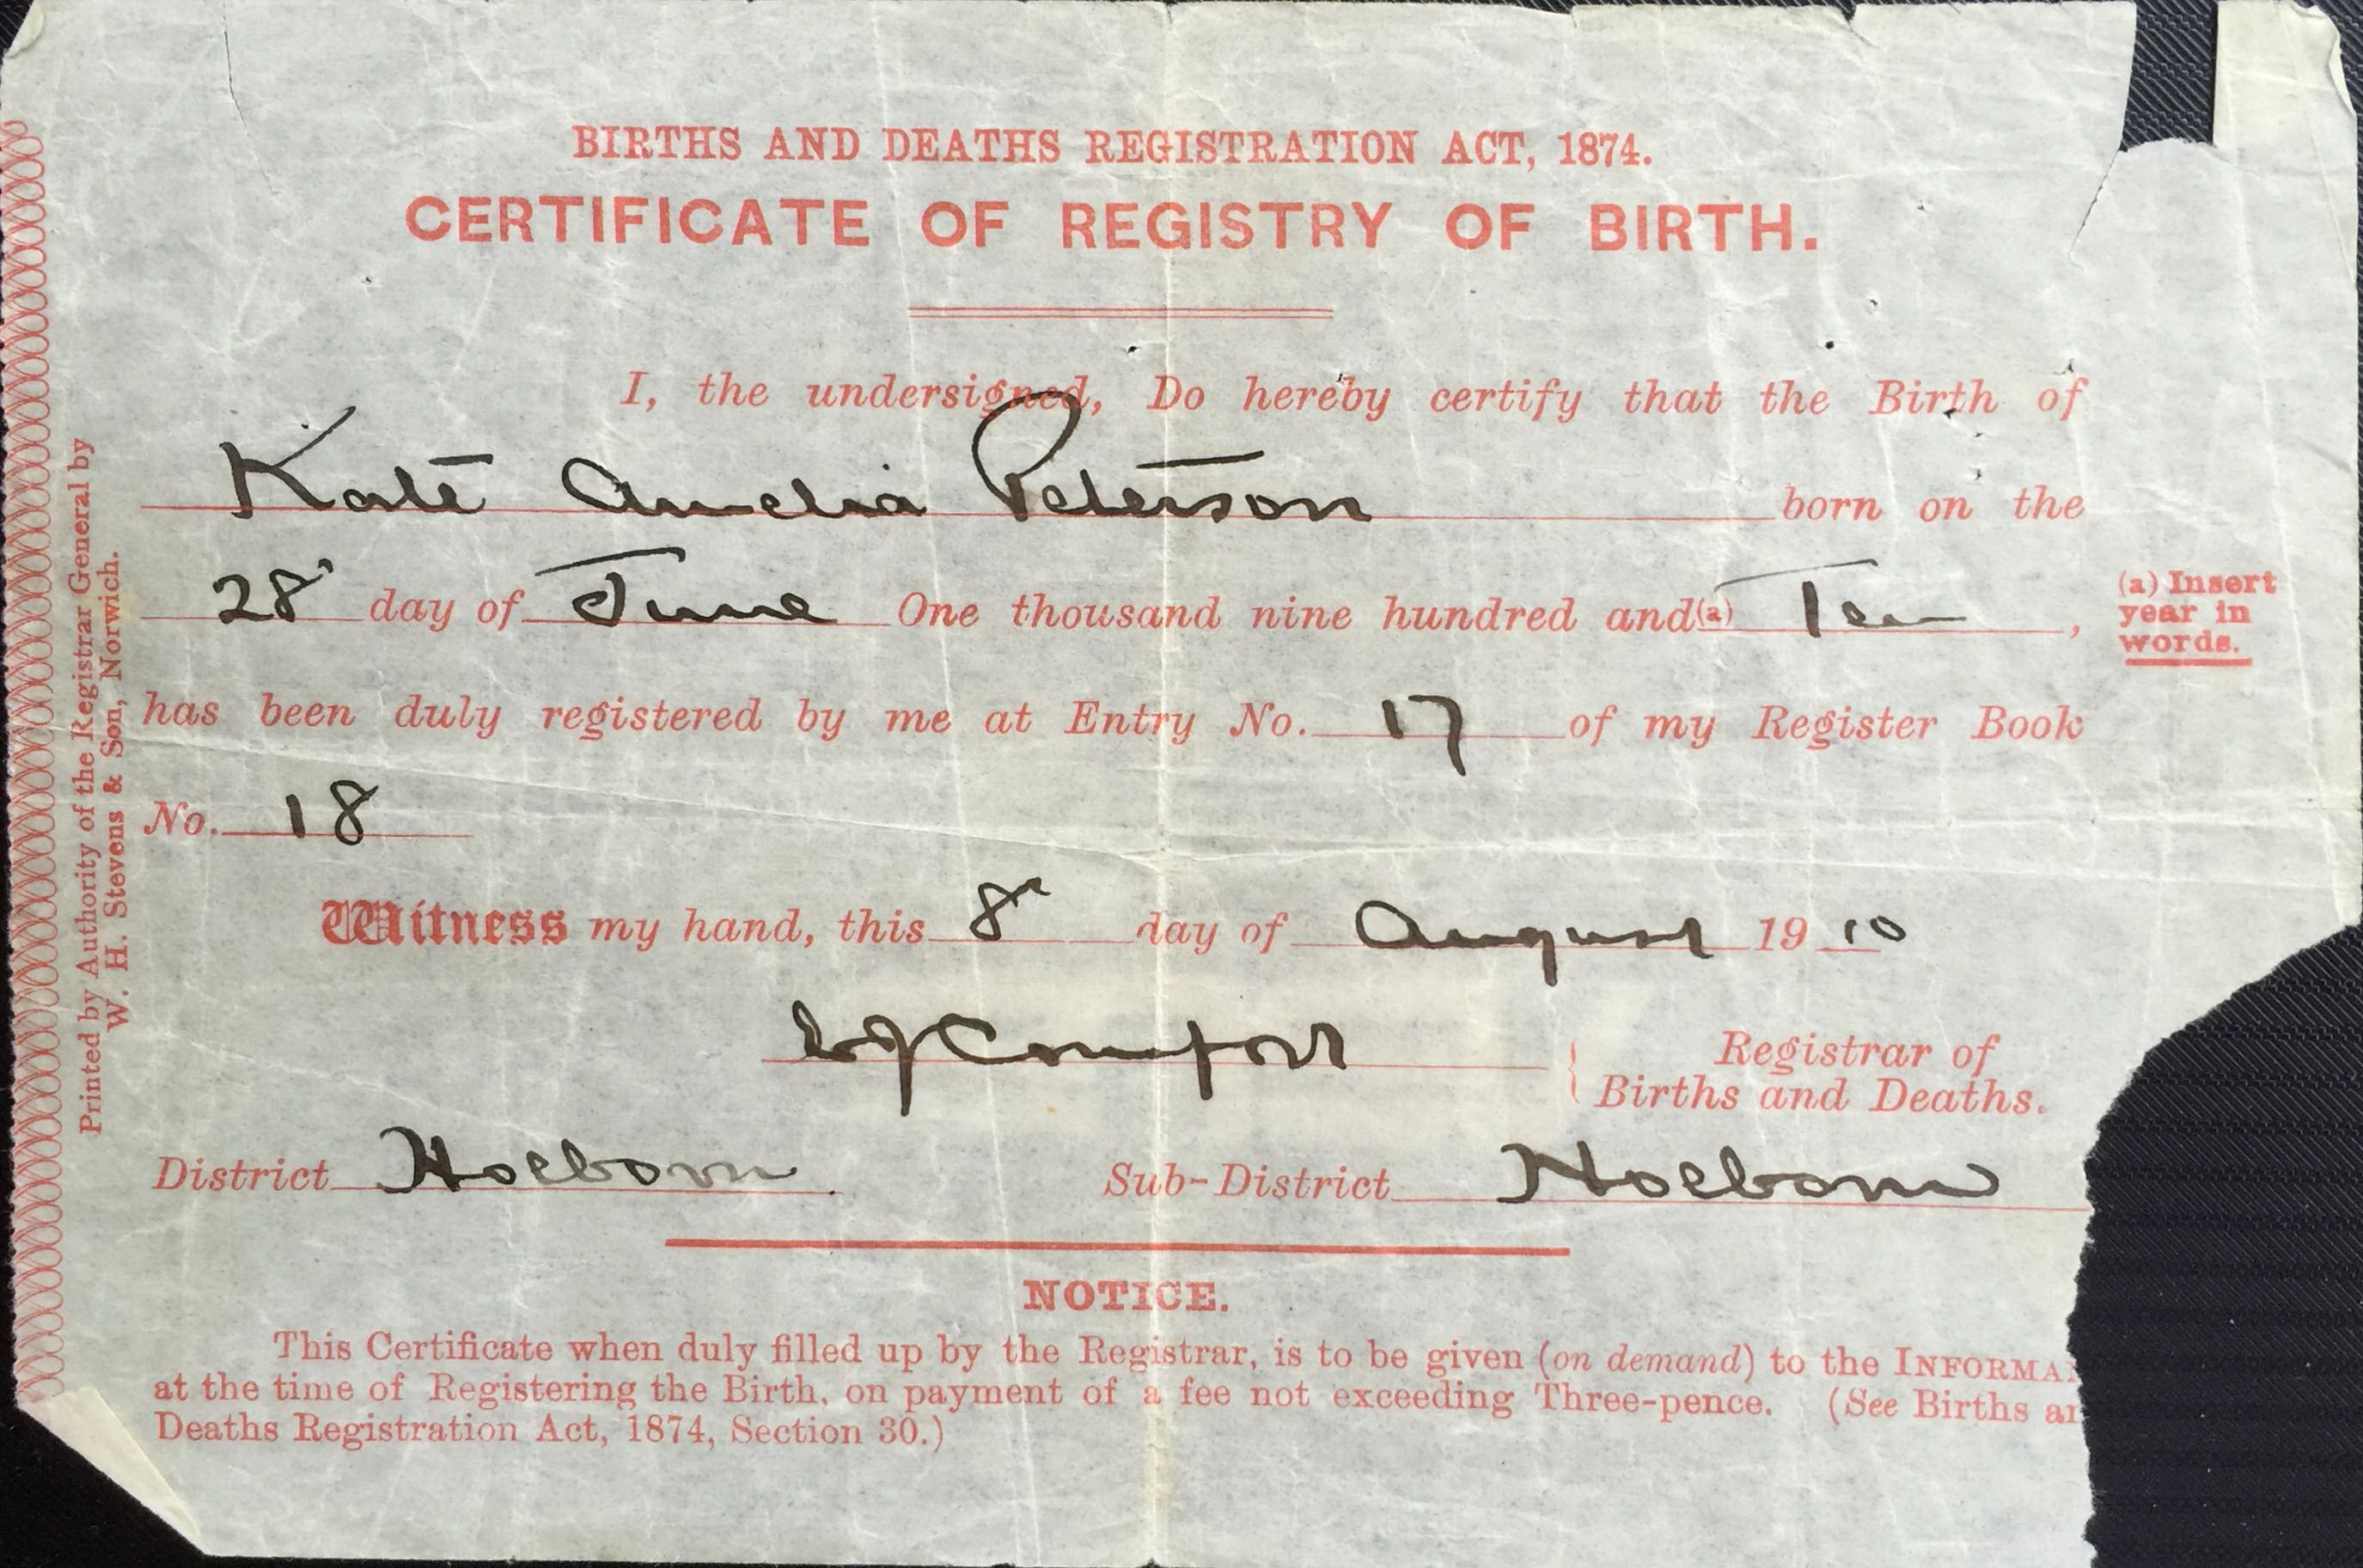 BIRTHS AND DEATHS REGISTRATION ACT, 1874.
CERTIFICATE OF REGISTRY OF BIRTH.
I, the undersigned, Do hereby certify that the Birth of
Kate Amelia Peterson born on the
28 day of June One thousand nine hundred and (a) Ten,
(a) Insert
year in
words.
has been duly registered by me at Entry No. 17 of my Register Book
No. 18
Witness my hand, this 8 day of August 1910
Comfort
Registrar of
Births and Deaths.
District Holborn. Sub-District Holborn
NOTICE.
This Certificate when duly filled up by the Registrar, is to be given (on demand) to the INFORMA
at the time of Registering the Birth, on payment of a fee not exceeding Three-pence. (See Births an
Deaths Registration Act, 1874, Section 30.)
Printed by Authority of the Registrar General by
W. H. Stevens & Son, Norwich.